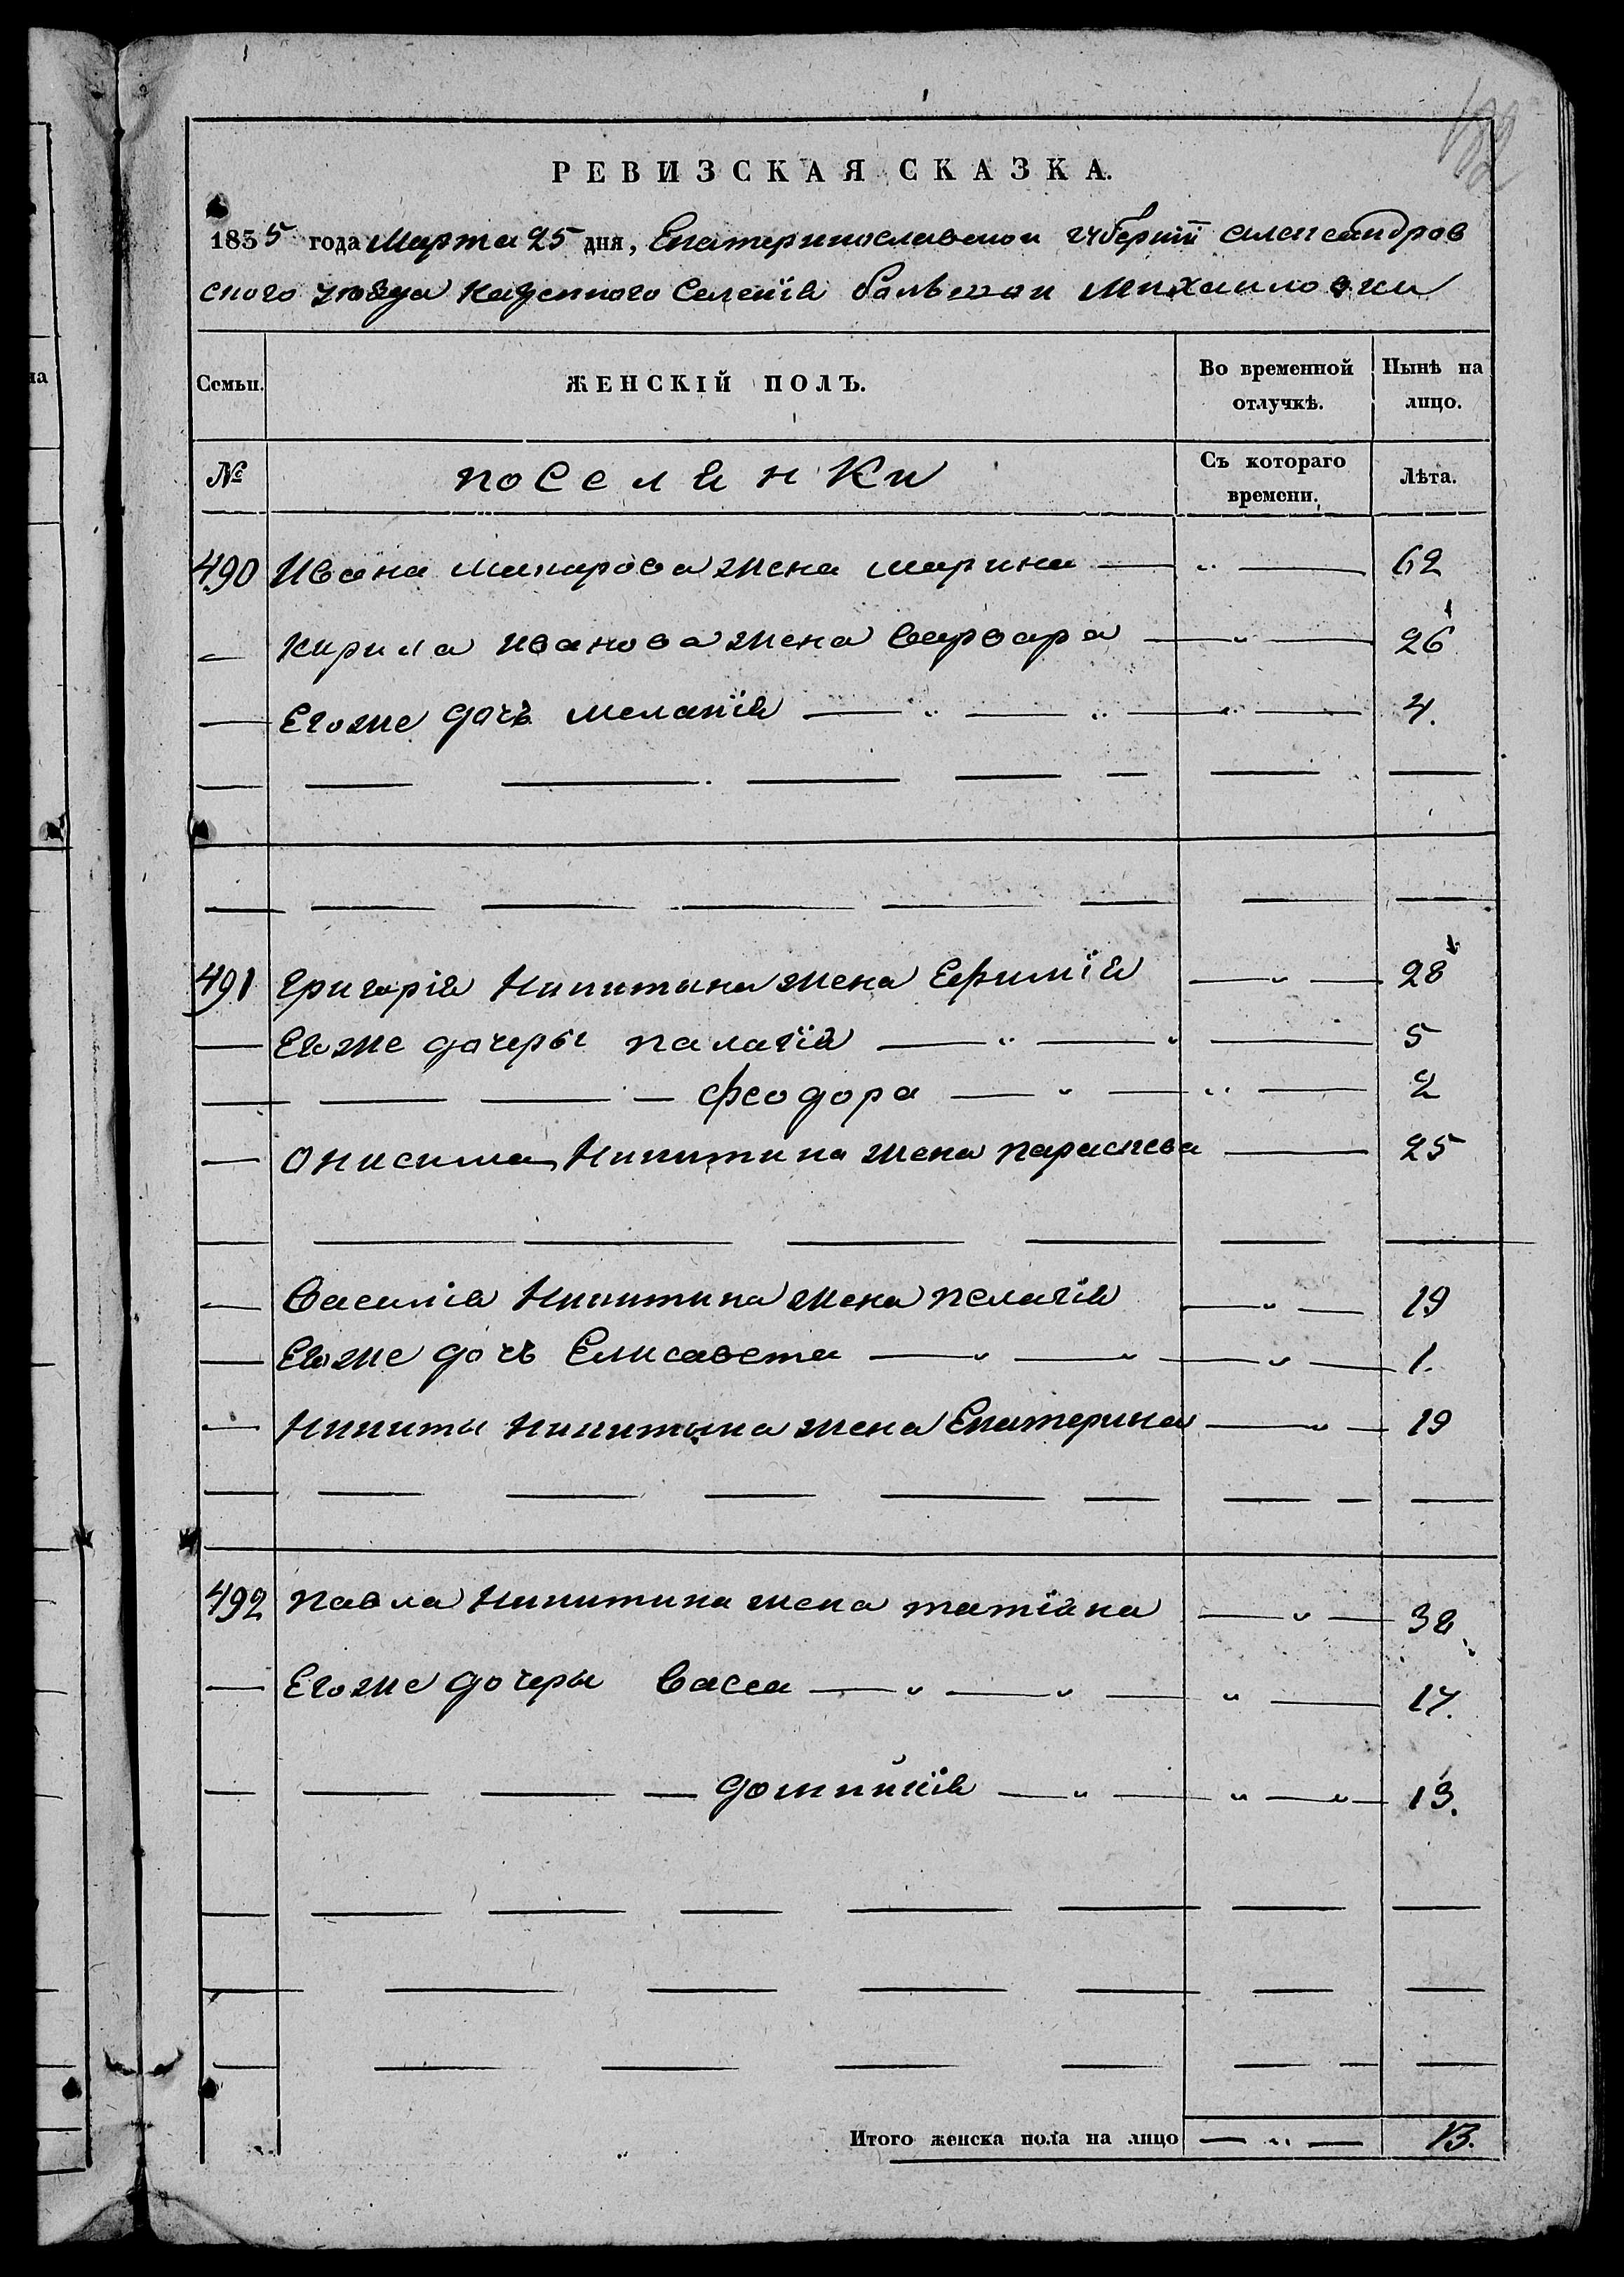 РЕВИЗСКАЯ СКАЗКА.
1835 года Марта 25 дня, Екатеринославскои губернїи александров
ского уѣзда казенного Селенїя большои Михаиловки
Семьи. ЖЕНСКІЙ ПОЛЪ. Во временной отлучкѣ. Нынѣ на лицо.
№ поселянки Съ котораго времени. Лѣта.
490 Ивана макарова жена марина — „ — 62
— Кирила иванова жена варвара — „ — 26
— Егоже дочь меланїя — „ — „ — „ — 4.
491 григорія Никитина жена Ефимїя — „ — 28
— Егоже дочеры палагїя — „ — „ — 5
— — — — феодора — „ — „ — 2
— Онисима Никитина жена параскева — 25
— Василія Никитина жена пелагїя — „ — 19
— Егоже дочь Елисавета — „ — „ — „ — 1.
— Никиты Никитина жена Екатерина — „ — 19
492 павла Никитина жена татїяна — „ — 32
— Егоже дочеры васса — „ — „ — „ — 17.
— — — — домникїя — „ — „ — „ — 13.
Итого женска пола на лицо — „ — 13.